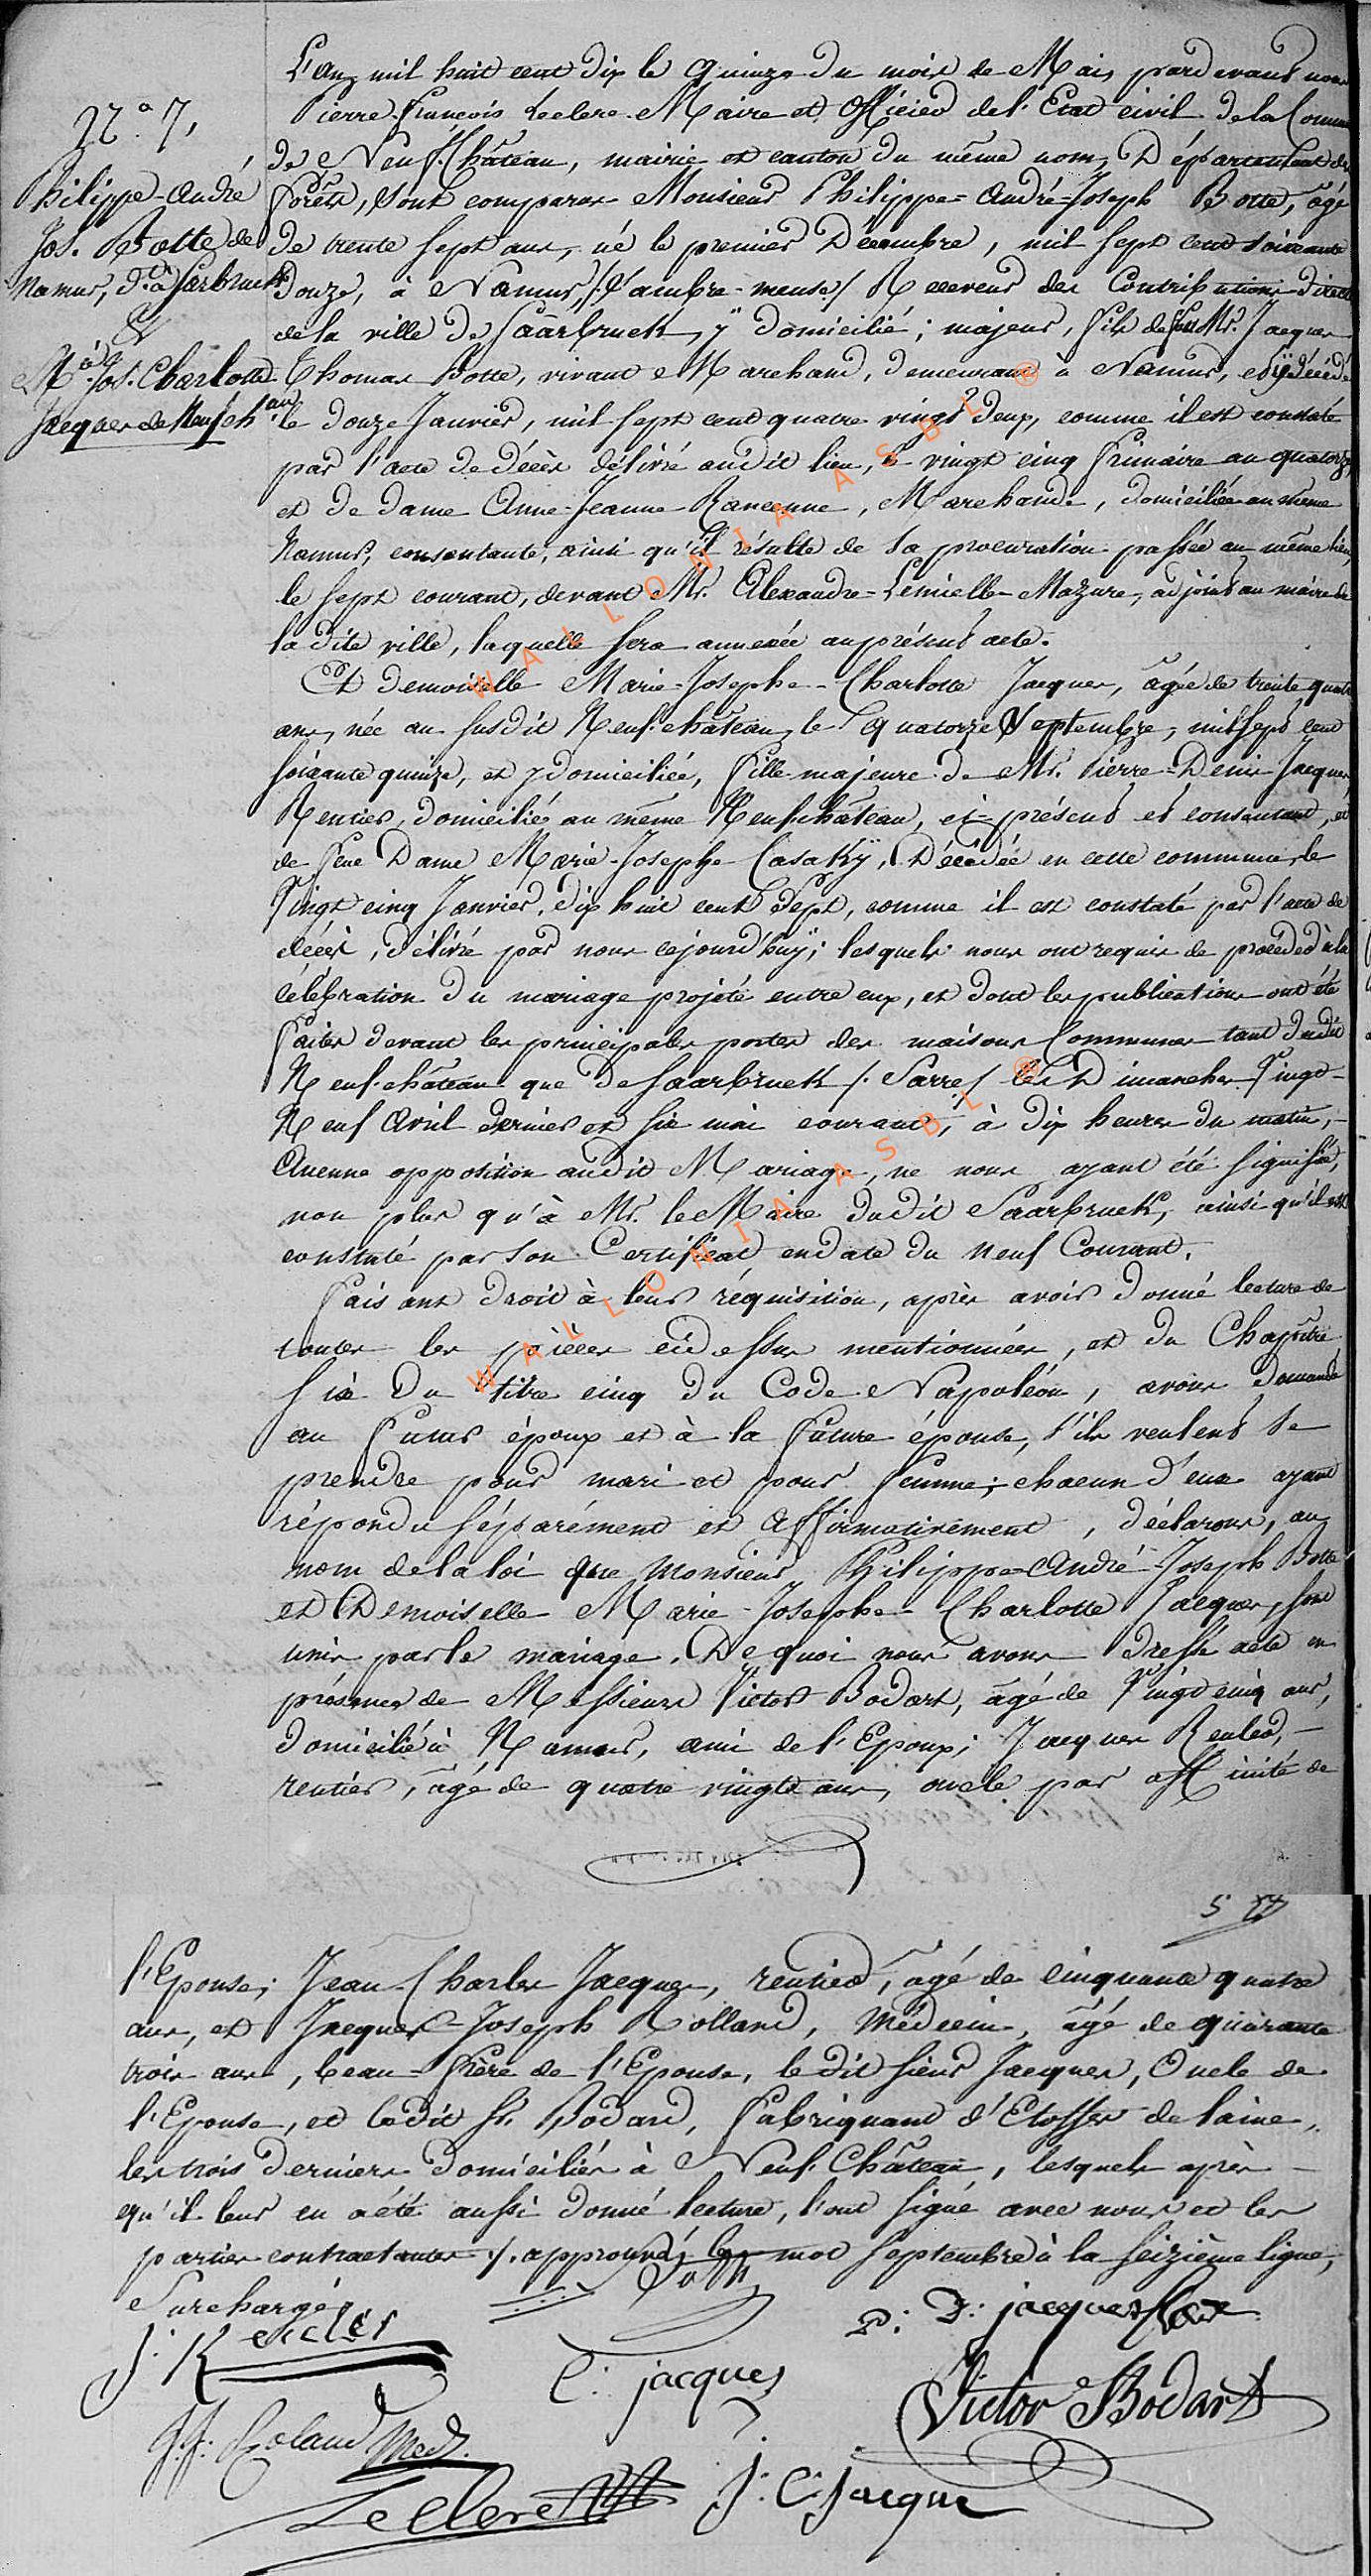 L'an mil huit cent dix le quinze du mois de Mai, pardevant nous
Pierre-François Leclerc Maire et Officier de l'Etat civil de la Commune
N.° 7,
de Neuf-Château, mairie et canton du même nom, Département des
Philippe-André
Forêts, sont comparus Monsieur Philippe-André-Joseph Botte, âgé
Jos. Botte de
de trente sept ans, né le premier Décembre, mil sept cent soixante
Namur, d.t à Sarbruck
douze, à Namur, /Sambre-meuse/ Receveur des Contributions directes
&
de la ville de Saarbruck, ÿ domicilié; majeur, fils de feu Mr. Jacques
M.e Jos. Charlotte
Thomas Botte, vivant Marchand, demeurant à Namur, eÿ décédé
Jacques de Neufch.au
le douze Janvier, mil sept cent quatre vingt deux, comme il est constaté
par l'acte de décès délivré audit lieu, le vingt cinq frimaire an quatorze,
et de dame Anne-Jeanne Rancenne, Marchande, domiciliée au même
Namur, consentante, ainsi qu'il résulte de sa procuration passée au même lieu,
le sept courant, devant Mr. Alexandre-Lemielle-Mazure, adjoint au maire de
la dite ville, laquelle sera annexée au présent acte.
Et demoiselle Marie-Josephe-Charlotte Jacques, âgée de trente quatre
ans, née au susdit Neufchâteau, le quatorze Septembre, mil sept cent
soixante quinze, et y domiciliée, fille majeure de Mr. Pierre-Denis Jacques,
Rentier, domicilié au même Neufchâteau, ci-présent et consentant, et
de feue Dame Marie-Josephe Casakÿ, Décédée en cette commune, le
vingt cinq Janvier, dix huit cent sept, comme il est constaté par l'acte de
décès, délivré par nous cejourd'huÿ; lesquels nous ont requis de procéder à la
célébration du mariage projeté entre eux, et dont les publications ont été
faites devant les principales portes des maisons Communes tant dudit
Neuf-château que de Saarbruck /. Sarre/ les Dimanches vingt-
Neuf Avril dernier et six mai courant, à dix heures du matin,
Aucune opposition audit Mariage, ne nous ayant été signifiée,
non plus qu'à Mr. le Maire dudit Saarbruck, ainsi qu'il est
constaté par son Certificat, en date du neuf Courant.
Faisant droit à leur réquisition, après avoir donné lecture de
toutes les pièces cidessus mentionnées, et du Chapitre
six du titre cinq du Code Napoléon, avons demandé
au futur époux et à la future épouse, s'ils veulent se
prendre pour mari et pour femme; chacun d'eux ayant
répondu séparément et affirmativement, déclarons, au
nom de la loi que Monsieur Philippe-André-Joseph Botte
et Demoiselle Marie-Josephe-Charlotte Jacques, sont
unis par le mariage. De quoi nous avons dressé acte en
présence de Messieurs Victor Bodart, âgé de vingt cinq ans,
domicilié à Namur, ami de l'Epoux; Jacques
rentier, âgé de quatre vingts ans, oncle par affinité de
5
l'Epouse; Jean-Charles Jacques, rentier, âgé de cinquante quatre
ans, et Jacques-Joseph Rolland, Médecin, âgé de quarante
trois ans, beau-frère de l'Epouse, le dit sieur Jacques, Oncle de
l'Epouse, et ledit Sr. Bodard, fabriquant d'Etoffes de laine,
les trois derniers domiciliés à Neuf-Château, lesquels après
qu'il leur en a été aussi donné lecture, l'ont signé avec nous et les
parties contractantes /. approuvé le mot septembre à la seizième ligne,
Surchargé.
P: D: jacques
C: jacques
Victor Bodart
J.J: Roland Med.
Leclerc
J: C: Jacques
WALLONIA ASBL ®
WALLONIA ASBL ®